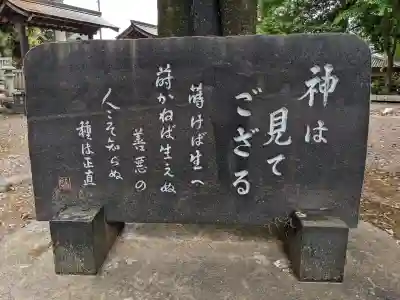 神は
見て
ござる
蒔けば生へ
蒔かねば生えぬ
善悪の
人こそ知らぬ
種は正直